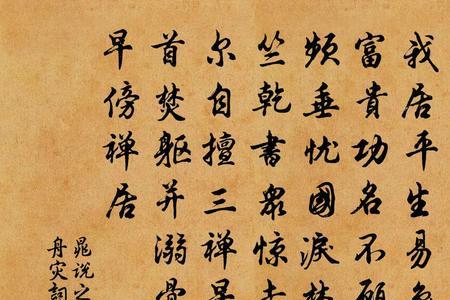 我居平生易
富貴功名不願
頻垂忧國淚
竺乾書衆惊
尔自擅三禅
首焚躯并溺骨
早傍禅居
晁說之
舟灾詞